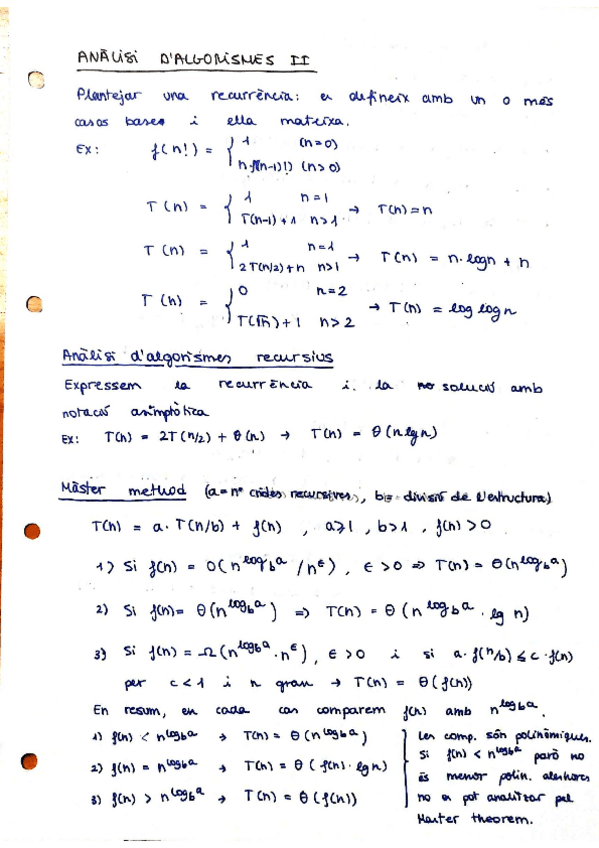 ANÀLISI D'ALGORISMES II
Plantejar una recurrència: es defineix amb un o més
casos bases i ella mateixa.
Ex: f(n!) = { 1 (n=0)
n·f((n-1)!) (n>0)
T(n) = { 1 n=1
T(n-1)+1 n>1 → T(n)=n
T(n) = { 1 n=1
2T(n/2)+n n>1 → T(n) = n·logn + n
T(n) = { 0 n=2
T(√n)+1 n>2 → T(n) = log logn
Anàlisi d'algorismes recursius
Expressem la recurrència i la solució amb
notació asimptòtica
Ex: T(n) = 2T(n/2) + θ(n) → T(n) = θ(n lgn)
Màster method (a = nº crides recursives, b = divisió de l'estructura)
T(n) = a·T(n/b) + f(n) , a≥1, b>1, f(n)>0
1) Si f(n) = O(n^log_b a / n^ε), ε>0 => T(n) = θ(n^log_b a)
2) Si f(n)= θ(n^log_b a) => T(n) = θ(n^log_b a · lg n)
3) Si f(n) = Ω(n^log_b a · n^ε), ε>0 i si a·f(n/b) ≤ c·f(n)
per c<1 i n gran → T(n) = θ(f(n))
En resum, en cada cas comparem f(n) amb n^log_b a.
1) f(n) < n^log_b a → T(n) = θ(n^log_b a)
2) f(n) = n^log_b a → T(n) = θ(f(n)·lgn)
3) f(n) > n^log_b a → T(n) = θ(f(n))
Les comp. són polinòmiques.
Si f(n) < n^log_b a però no
és menor polin. aleshores
no es pot analitzar pel
Master theorem.